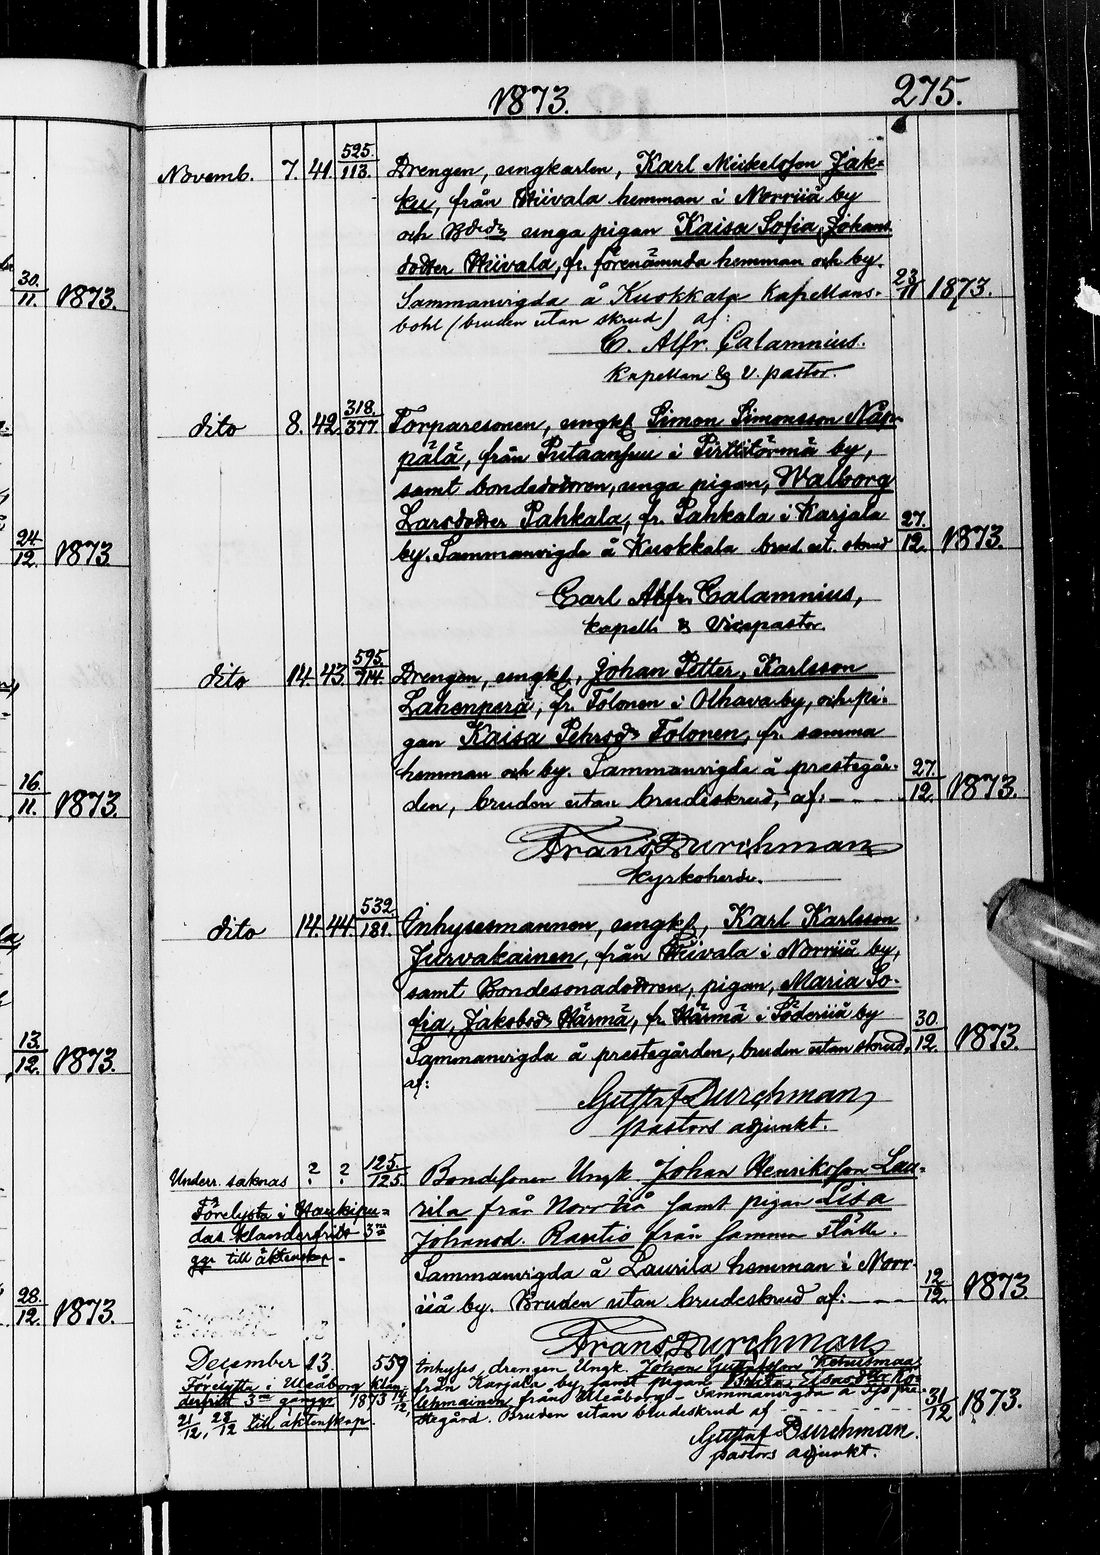 1873.
275.
Novemb. 7. 41. 525. 113. Drengen, ungkarlen, Karl Mickelsson Jak-
ku, från Hiivala hemman i Norriiå by
och Bdedr unga pigan Kaisa Sofia, Johans
dotter Hiivala, fr. förenämnda hemman och by.
Sammanvigda å Kuokkala Kapellans- 23. 11 1873.
bohl (bruden utan skrud) af:
C. Alfr. Calamnius.
Kapellan & V. pastor.
dito 8. 42. 318. 377. Torparesonen, ungk, Simon Simonsson Näp-
pälä, från Putaansuu i Pirttitörmä by,
samt bondedottren, unga pigan, Walborg
Larsdotter Pahkala, fr. Pahkala i Karjala
by. Sammanvigda å Kuokkala brud. ut. skrud 27. 12. 1873.
Carl Alfr. Calamnius,
Kapell. & Vicepastor.
dito 14. 43. 595. 714. Drengen, ungk, Johan Petter, Karlsson
Lahenperä, fr. Tolonen i Olhava by, och pi-
gan Kaisa Pehrsdr Tolonen, fr. samma
hemman och by. Sammanvigda å prestegår-
den, bruden utan brudeskrud, af: 27. 12. 1873.
Frans Durchman
Kyrkoherde.
dito 14. 44. 532. 181. Inhysesmannen, ungk, Karl Karlsson
Jurvakainen, från Hiivala i Norriiå by,
samt Bondesonadottren, pigan, Maria So-
fia, Jakobsdr Härmä, fr. Härmä i Söderiiå by
Sammanvigda å prestegården, bruden utan skrud, 30. 12. 1873.
af:
Gustaf Durchman,
pastors adjunkt.
Underr. saknas ? ? 125. 125. Bondesonen Ungk Johan Henriksson Lau-
Förelysta i Haukipu-
rila från Norr Iiå samt pigan Lisa
das klanderfritt 3ne
Johansd. Rautio från samma ställe.
ggr till äktenskap.
Sammanvigda å Laurila hemman i Norr-
iiå by. Bruden utan brudeskrud af: 12 12. 1873
Frans Durchman
December 13. 559 Inhyses, drengen Ungk. Johan Gustafsson
Förelysta i Uleåborg klan-
från Karjala by samt pigan Brita,
derfritt 3ne gånger 1873 14/12,
från Uleåborg. Sammanvigda å
21/12, 28/12 till äktenskap.
stegård. Bruden utan brudeskrud af 31/12 1873.
Gustaf Durchman.
pastors adjunkt.
30. 11. 1873.
24 12. 1873
16. 11. 1873.
13. 12. 1873.
28. 12. 1873